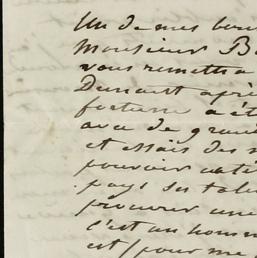 Un de mes bons
Monsieur B
vous remettra
Durant apri
fortune a été
avec de grand
et essais des
pouvoir utili
pays ses tale
procurer une
c'est un homm
est pour me